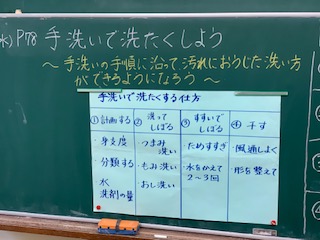 水) P78 手洗いで洗たくしよう
〜手洗いの手順に沿って汚れにおうじた洗い方
ができるようになろう〜
手洗いで洗たくする仕方
①計画する
・身支度
・分類する
水
洗剤の量
②洗って
しぼる
・つまみ
洗い
・もみ洗い
・おし洗い
③すすいで
しぼる
・ためすすぎ
・水をかえて
2〜3回
④干す
・風通しよく
・形を整えて